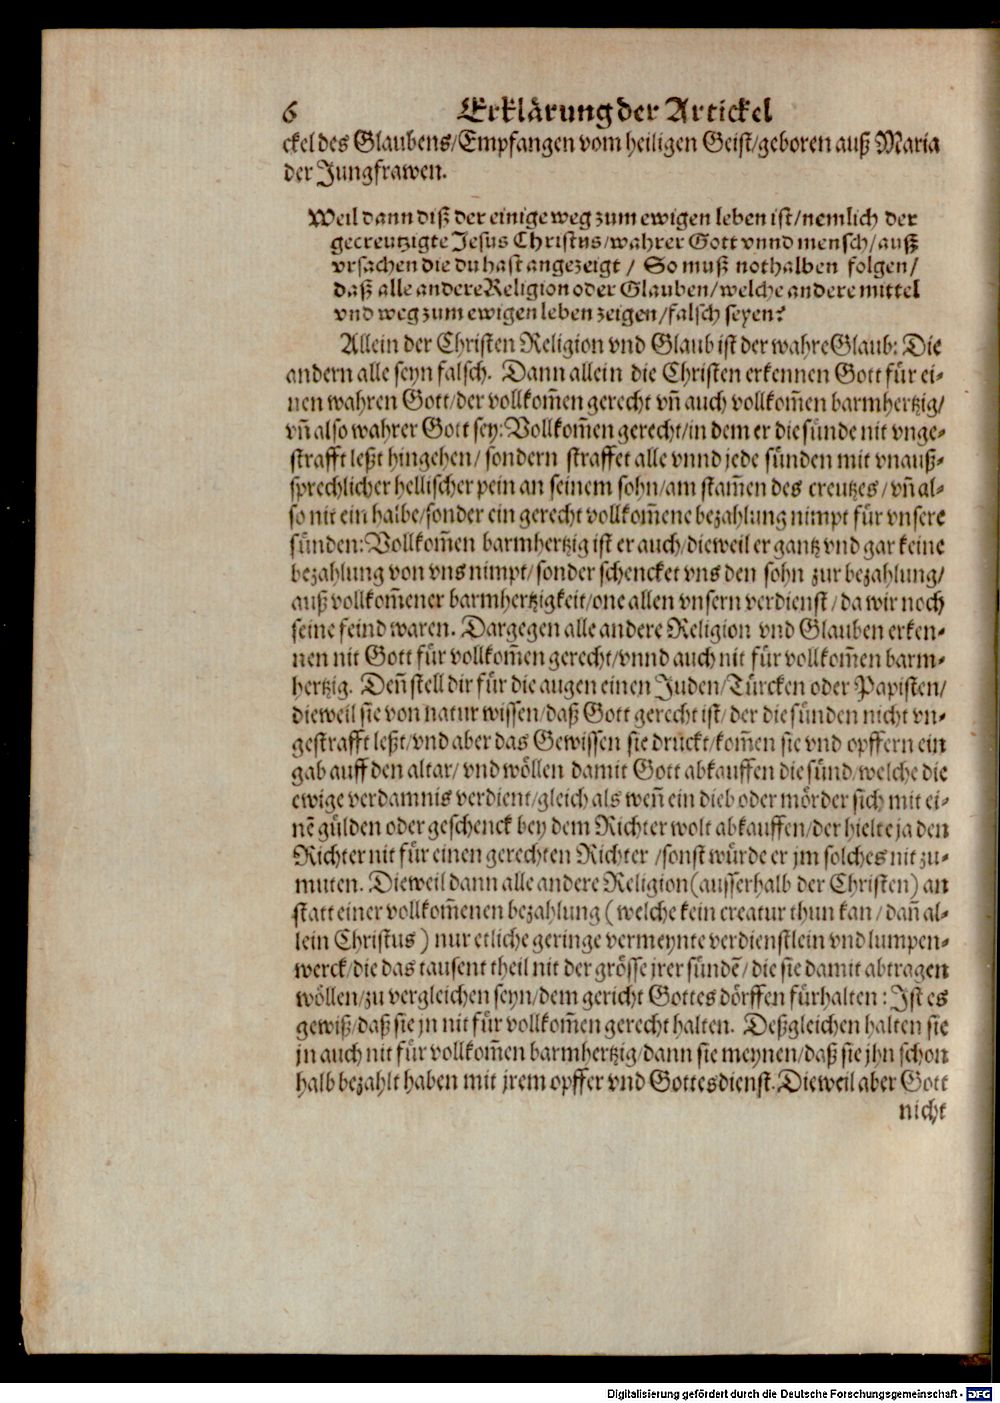 6 Erklärung der Artickel
ckel des Glaubens/Empfangen vom heiligen Geist/geboren auß Maria
der Jungfrawen.
Weil dann diß der einige weg zum ewigen leben ist/nemlich der
gecreutzigte Jesus Christus/wahrer Gott vnnd mensch/auß
vrsachen die du hast angezeigt / So muß nothalben folgen/
daß alle andere Religion oder Glauben/welche andere mittel
vnd weg zum ewigen leben zeigen/falsch seyen?
Allein der Christen Religion vnd Glaub ist der wahre Glaub: Die
andern alle seyn falsch. Dann allein die Christen erkennen Gott für ei-
nen wahren Gott/der vollkom̃en gerecht vñ auch vollkom̃en barmhertzig/
vñ also wahrer Gott sey: Vollkom̃en gerecht/in dem er die sünde nit vnge-
strafft leßt hingehen/ sondern straffet alle vnnd jede sünden mit vnauß-
sprechlicher hellischer pein an seinem sohn/am stam̃en des creutzes/ vñ al-
so nit ein halbe/sonder ein gerecht vollkom̃ene bezahlung nimpt für vnsere
sünden: Vollkom̃en barmhertzig ist er auch/dieweil er gantz vnd gar keine
bezahlung von vns nimpt/sonder schencket vns den sohn zur bezahlung/
auß vollkom̃ener barmhertzigkeit/one allen vnsern verdienst/da wir noch
seine feind waren. Dargegen alle andere Religion vnd Glauben erken-
nen nit Gott für vollkom̃en gerecht/vnnd auch nit für vollkom̃en barm-
hertzig. Deñ stell dir für die augen einen Juden/Türcken oder Papisten/
dieweil sie von natur wissen/daß Gott gerecht ist/der die sünden nicht vn-
gestrafft leßt/vnd aber das Gewissen sie drückt/kom̃en sie vnd opffern ein
gab auff den altar/ vnd wöllen damit Gott abkauffen die sünd/welche die
ewige verdamnis verdient/gleich als weñ ein dieb oder mörder sich mit ei-
nẽ gülden oder geschenck bey dem Richter wolt abkauffen/der hielte ja den
Richter nit für einen gerechten Richter /sonst würde er jm solches nit zu-
muten. Dieweil dann alle andere Religion (ausserhalb der Christen) an
statt einer vollkom̃enen bezahlung (welche kein creatur thun kan/dañ al-
lein Christus) nur etliche geringe vermeynte verdienstlein vnd lumpen-
werck/die das tausent theil nit der grösse jrer sündẽ/die sie damit abtragen
wöllen/zu vergleichen seyn/dem gericht Gottes dörffen fürhalten: Ist es
gewiß/daß sie jn nit für vollkom̃en gerecht halten. Deßgleichen halten sie
jn auch nit für vollkom̃en barmhertzig/dann sie meynen/daß sie jhn schon
halb bezahlt haben mit jrem opffer vnd Gottesdienst. Dieweil aber Gott
nicht
Digitalisierung gefördert durch die Deutsche Forschungsgemeinschaft - DFG